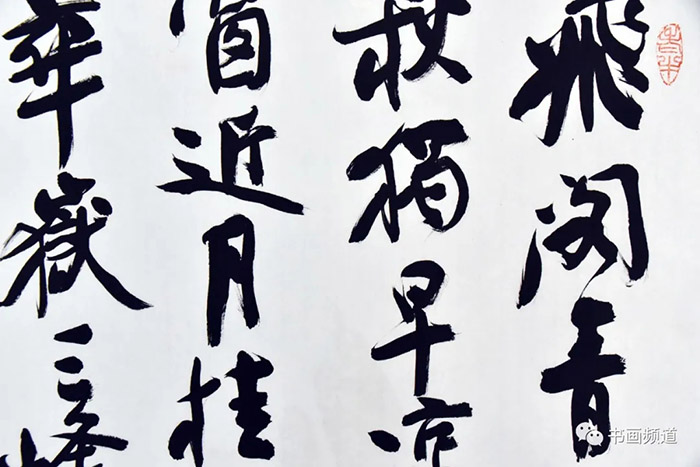 飛閣青
秋獨早凉
窗近月桂
華嶽三峰
书画频道